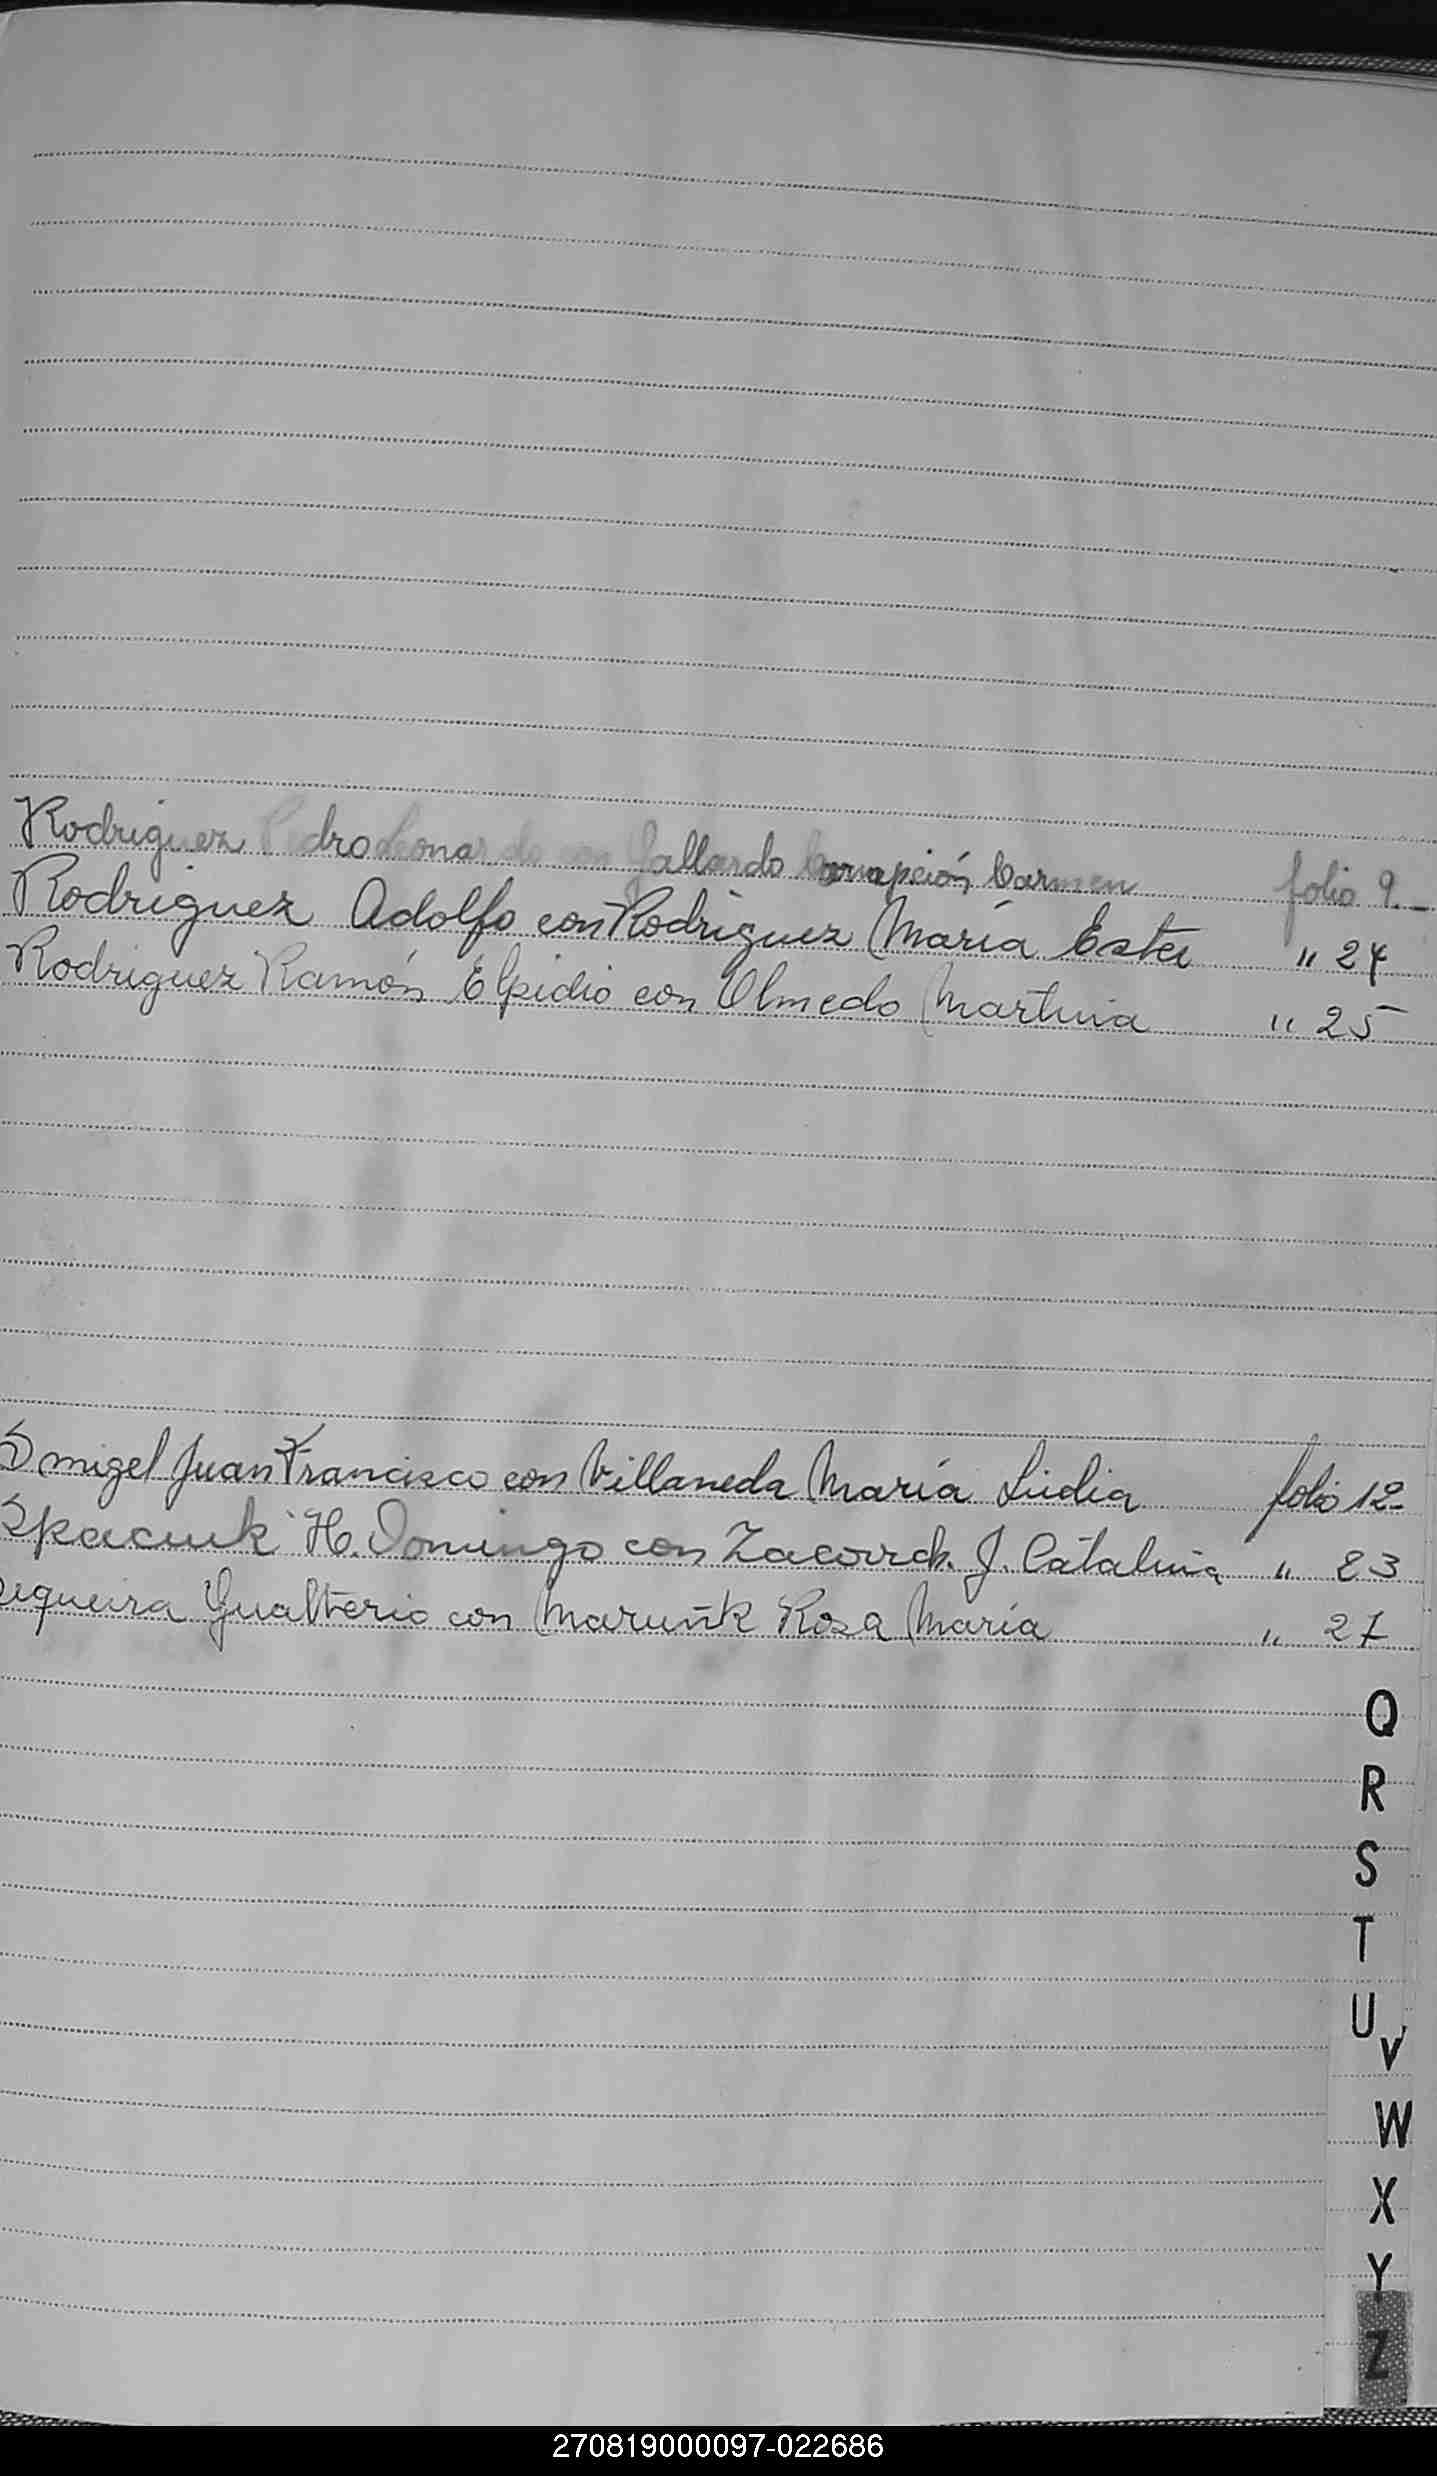 Rodriguez Pedro Leonardo con Gallardo Carmen folio 9.-
Rodriguez Adolfo con Rodriguez María Ester " 24
Rodriguez Ramón Elpidio con Olmedo Martina " 25
Smigel Juan Francisco con Villaneda María Lidia folio 12-
Spaciuk H. Domingo con J. Catalina " 23
Sequeira Gualterio con Maruñk Rosa María " 27
Q
R
S
T
U
V
W
X
Y
Z
270819000097-022686